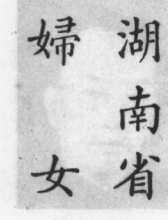 湖南省
婦女